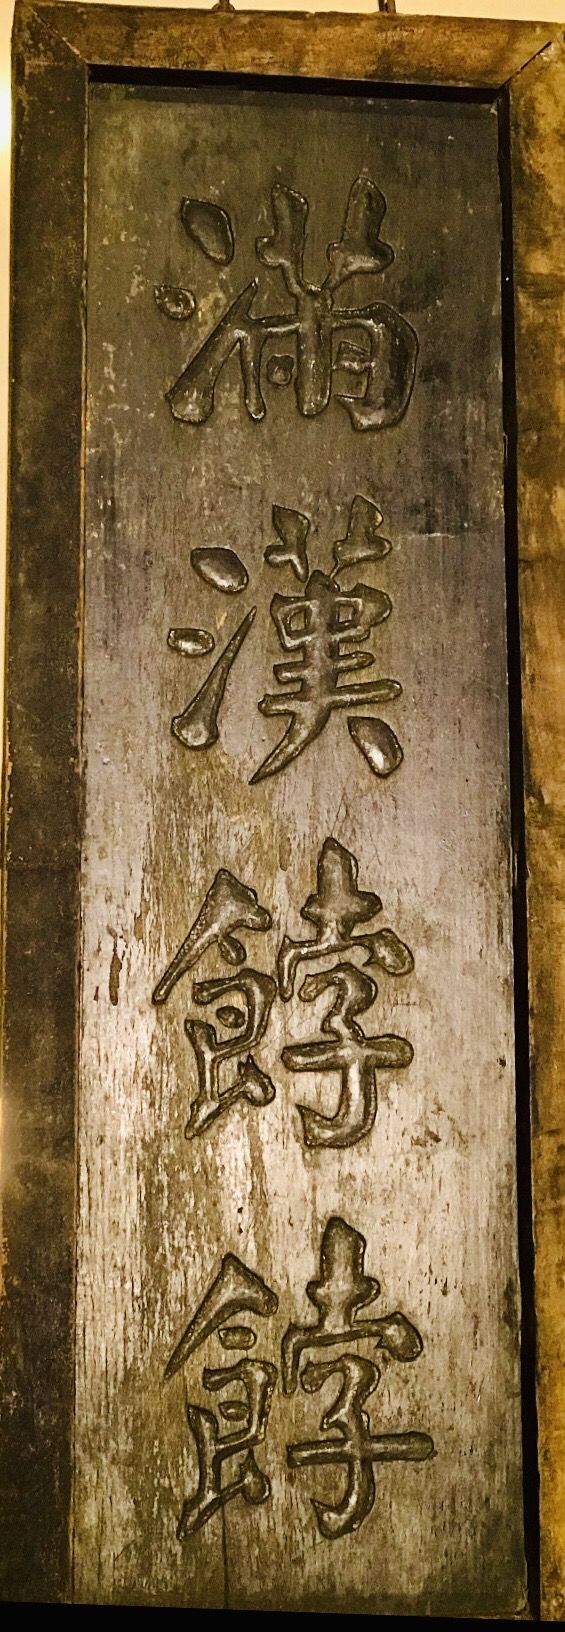 滿漢餑餑